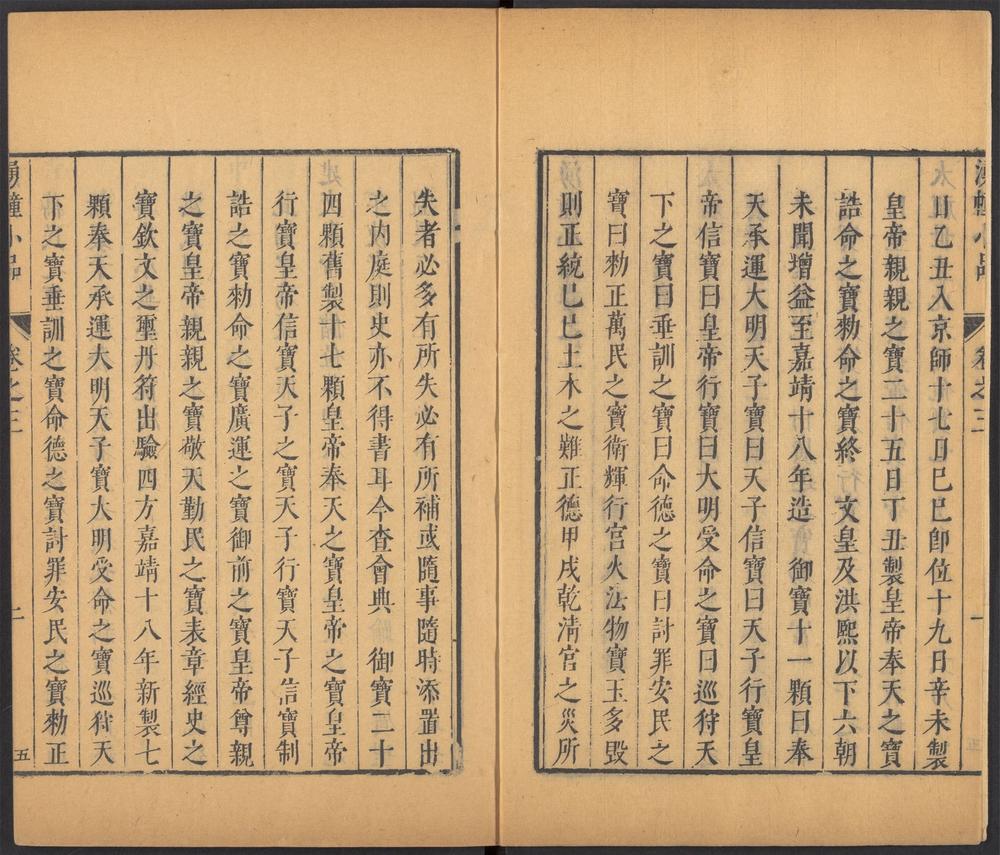 湧幢小品
卷之三
一
日乙丑入京師十七日己巳卽位十九日辛未製
皇帝親親之寶二十五日丁丑製皇帝奉天之寶
誥命之寶勑命之寶終　文皇及洪熙以下六朝
未聞增益至嘉靖十八年造　御寶十一顆曰奉
天承運大明天子寶曰天子信寶曰天子行寶皇
帝信寶曰皇帝行寶曰大明受命之寶曰巡狩天
下之寶曰垂訓之寶曰命德之寶曰討罪安民之
寶曰勑正萬民之寶衛輝行宮火法物寶玉多毀
則正統己巳土木之難正德甲戌乾淸宮之災所
失者必多有所失必有所補或隨事隨時添置出
之内庭則史亦不得書耳今查會典　御寶二十
四顆舊製十七顆皇帝奉天之寶皇帝之寶皇帝
行寶皇帝信寶天子之寶天子行寶天子信寶制
誥之寶勑命之寶廣運之寶御前之寶皇帝尊親
之寶皇帝親親之寶敬天勤民之寶表章經史之
寶欽文之璽丹符出驗四方嘉靖十八年新製七
顆奉天承運大明天子寶大明受命之寶巡狩天
下之寶垂訓之寶命德之寶討罪安民之寶勑正
湧幢小品
卷之三
二
五